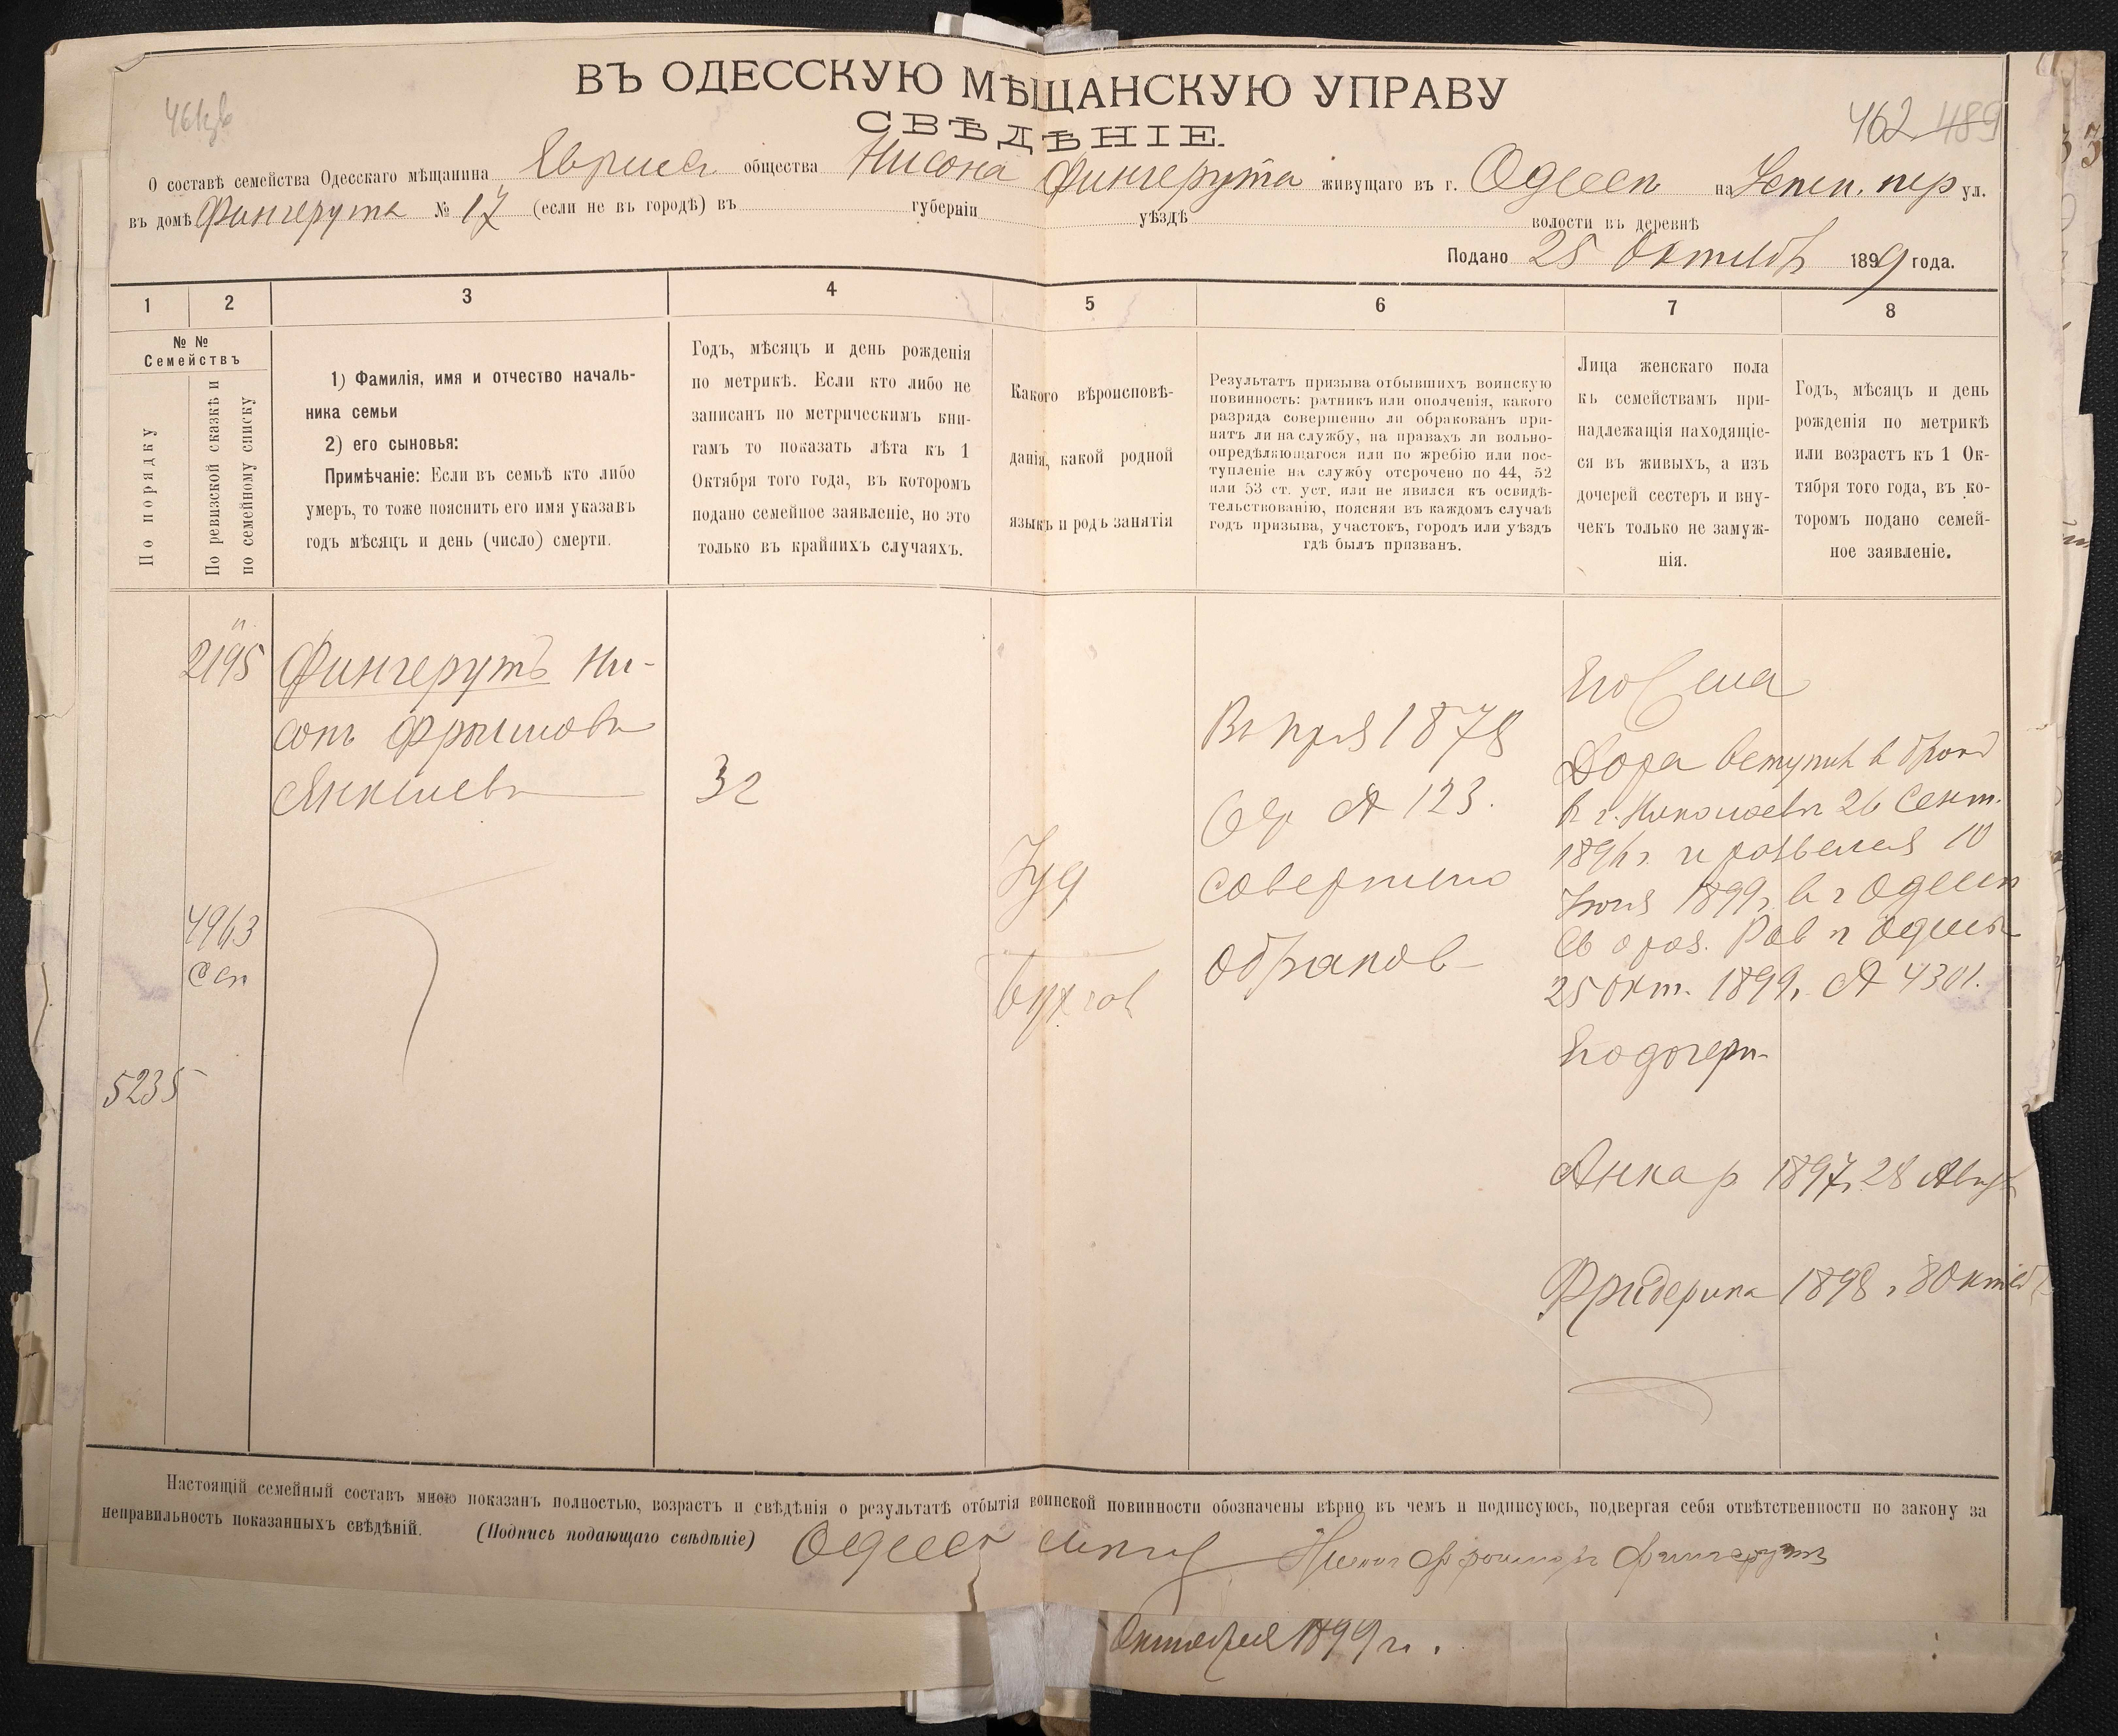 ВЪ ОДЕССКУЮ МѢЩАНСКУЮ УПРАВУ
СВѢДѢНІЕ.
462 489
О составѣ семейства Одесскаго мѣщанина общества Нисона Фингерута живущаго въ г. Одессѣ на Успен. пер ул.
въ домѣ Фингерута № 17 (если не въ городѣ) въ губерніи уѣздѣ волости въ деревнѣ
Подано 25 Октября 1899 года.
1 2 3 4 5 6 7 8
№ №
Семействъ
По порядку
По ревизской сказкѣ и
по семейному списку
1) Фамилія, имя и отчество началь-
ника семьи
2) его сыновья:
Примѣчаніе: Если въ семьѣ кто либо
умеръ, то тоже пояснить его имя указавъ
годъ мѣсяцъ и день (число) смерти.
Годъ, мѣсяцъ и день рожденія
по метрикѣ. Если кто либо не
записанъ по метрическимъ кни-
гамъ то показать лѣта къ 1
Октября того года, въ которомъ
подано семейное заявленіе, но это
только въ крайнихъ случаяхъ.
Какого вѣроисповѣ-
данія, какой родной
языкъ и родъ занятія
Результатъ призыва отбывшихъ воинскую
повинность: ратникъ или ополченія, какого
разряда совершенно ли обракованъ при-
нятъ ли на службу, на правахъ ли вольно-
опредѣляющагося или по жребію или пос-
тупленіе на службу отсрочено по 44, 52
или 53 ст. уст. или не явился къ освидѣ-
тельствованію, поясняя въ каждомъ случаѣ
годъ призыва, участокъ, городъ или уѣздъ
гдѣ былъ призванъ.
Лица женскаго пола
къ семействамъ при-
надлежащія находящіе-
ся въ живыхъ, а изъ
дочерей сестеръ и вну-
чекъ только не замуж-
нія.
Годъ, мѣсяцъ и день
рожденія по метрикѣ
или возрастъ къ 1 Ок-
тября того года, въ ко-
торомъ подано семей-
ное заявленіе.
2195
Фингерутъ Ни-
сонъ Фроимовъ
Янкелевъ
32
4963
5235
Іуд
Бухгал
1878
№ 123.
совершено
обраков
Его жена
Дора вступил в брак
в г. Николаевѣ 26 Сент.
1896 г. и развелся 10
Іюня 1899 г. в г Одессѣ
Св о раз. Рав г Одессы
25 Окт. 1899 г. № 4301.
Его дочери
Анна р 1897 г. 28 Авгус
Фридерика 1898 г 8 Октяб
Настоящій семейный составъ мною показанъ полностью, возрастъ и свѣдѣнія о результатѣ отбытія воинской повинности обозначены вѣрно въ чемъ и подписуюсь, подвергая себя отвѣтственности по закону за
неправильность показанныхъ свѣдѣній. (Подпись подающаго свѣдѣніе) Одесск Нисонъ Фроимовъ Фингерутъ
Октября 1899 г.